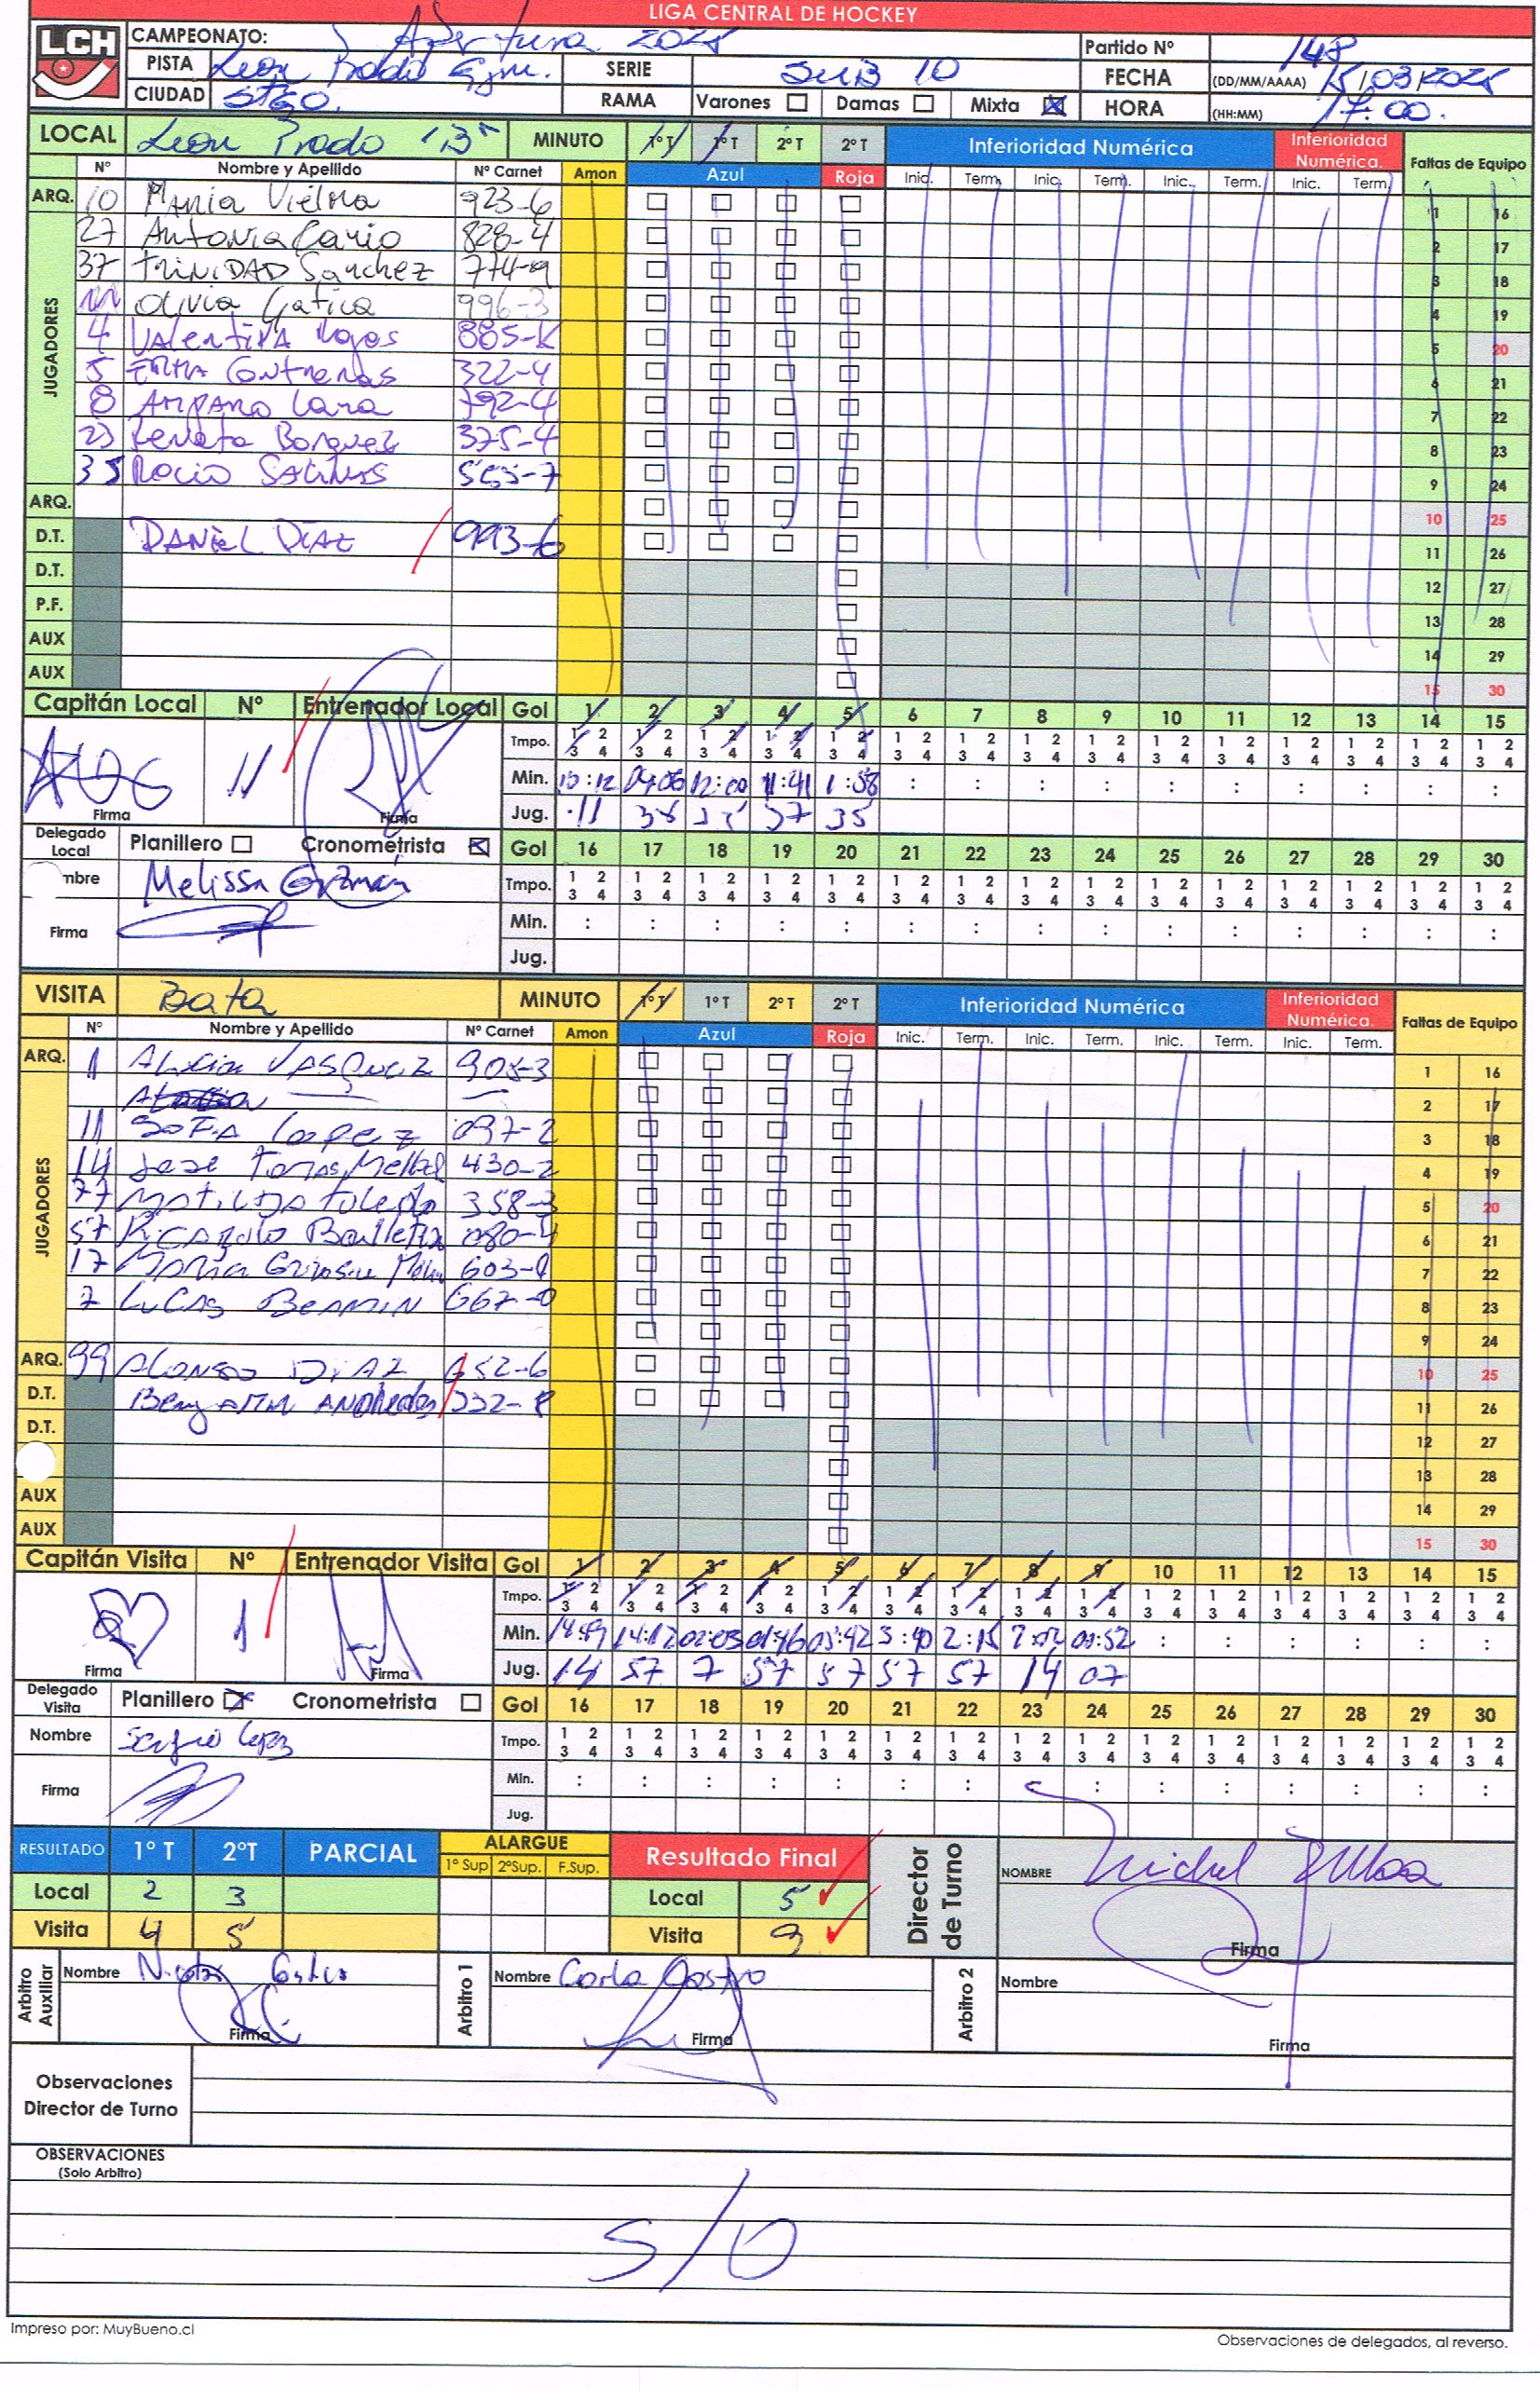 LIGA CENTRAL DE HOCKEY
LCH
CAMPEONATO: Apertura 2025
Partido Nº 148
PISTA Leon Prado Gym. SERIE SUB 10
FECHA (DD/MM/AAAA) 15/03/2025
CIUDAD STGO. RAMA Varones Damas Mixta
HORA (HH:MM) 17:00.
LOCAL Leon Prado "B" MINUTO 1º T 1º T 2º T 2º T Inferioridad Numérica Inferioridad Numérica. Faltas de Equipo
Nº Nombre y Apellido Nº Carnet Amon Azul Roja Inic. Term. Inic. Term. Inic. Term. Inic. Term.
ARQ. 10 Maria Vielma 923-6 1 16
JUGADORES
27 Antonia Cario 828-4 2 17
37 TRINIDAD Sanchez 3 18
11 Olivia Gatica 996-3 4 19
4 Valentina Rojas 885-K 5 20
5 Emma Contreras 322-4 6 21
8 Amparo Lara 792-4 7 22
23 Renata Borquez 375-4 8 23
35 Rocio Salinas 565-7 9 24
ARQ. 10 25
D.T. DANIEL DIAZ 993-6 11 26
D.T. 12 27
P.F. 13 28
AUX 14 29
AUX 15 30
Capitán Local Nº Entrenador Local Gol 1 2 3 4 5 6 7 8 9 10 11 12 13 14 15
Tmpo. 1 2 3 4 1 2 3 4 1 2 3 4 1 2 3 4 1 2 3 4 1 2 3 4 1 2 3 4 1 2 3 4 1 2 3 4 1 2 3 4 1 2 3 4 1 2 3 4 1 2 3 4 1 2 3 4 1 2 3 4
11 Min. 10:12 04:06 12:00 11:41 1:58 : : : : : : : : : :
Firma Firma Jug. 11 37 35
Delegado Local Planillero Cronometrista Gol 16 17 18 19 20 21 22 23 24 25 26 27 28 29 30
mbre Melissa Guzmán Tmpo. 1 2 3 4 1 2 3 4 1 2 3 4 1 2 3 4 1 2 3 4 1 2 3 4 1 2 3 4 1 2 3 4 1 2 3 4 1 2 3 4 1 2 3 4 1 2 3 4 1 2 3 4 1 2 3 4 1 2 3 4
Firma Min. : : : : : : : : : : : : : : :
Jug.
VISITA Bata MINUTO 1º T 1º T 2º T 2º T Inferioridad Numérica Inferioridad Numérica. Faltas de Equipo
Nº Nombre y Apellido Nº Carnet Amon Azul Roja Inic. Term. Inic. Term. Inic. Term. Inic. Term.
ARQ. 1 VASQUEZ 905-3 1 16
JUGADORES
2 17
11 SOFIA Lopez 097-2 3 18
14 Jose Tomas 430-2 4 19
77 Matilda Toledo 358-3 5 20
57 Ricardo 6 21
17 Maria 7 22
7 LUCAS 667-0 8 23
9 24
ARQ. 99 ALONSO DIAZ 652-6 10 25
D.T. Benjamin 332-8 11 26
D.T. 12 27
13 28
AUX 14 29
AUX 15 30
Capitán Visita Nº Entrenador Visita Gol 1 2 3 4 5 6 7 8 9 10 11 12 13 14 15
Tmpo. 1 2 3 4 1 2 3 4 1 2 3 4 1 2 3 4 1 2 3 4 1 2 3 4 1 2 3 4 1 2 3 4 1 2 3 4 1 2 3 4 1 2 3 4 1 2 3 4 1 2 3 4 1 2 3 4 1 2 3 4
1 Min. 14:49 14:12 02:03 01:46 05:42 3:40 2:15 00:52 : : : : : :
Firma Firma Jug. 14 57 7 57 57 57 57 14 07
Delegado Visita Planillero Cronometrista Gol 16 17 18 19 20 21 22 23 24 25 26 27 28 29 30
Nombre Sergio Lopez Tmpo. 1 2 3 4 1 2 3 4 1 2 3 4 1 2 3 4 1 2 3 4 1 2 3 4 1 2 3 4 1 2 3 4 1 2 3 4 1 2 3 4 1 2 3 4 1 2 3 4 1 2 3 4 1 2 3 4 1 2 3 4
Firma Min. : : : : : : : : : : : : : : :
Jug.
RESULTADO 1º T 2ºT PARCIAL ALARGUE 1º Sup 2ºSup. F.Sup. Resultado Final
Director de Turno NOMBRE Michel
Local 2 3 Local 5
Visita 4 5 Visita 9
Firma
Arbitro Auxiliar Nombre Nicolas Castro Arbitro 1 Nombre Carla Castro Arbitro 2 Nombre
Firma Firma Firma
Observaciones Director de Turno
OBSERVACIONES
(Solo Arbitro)
S/O
Impreso por: MuyBueno.cl
Observaciones de delegados, al reverso.